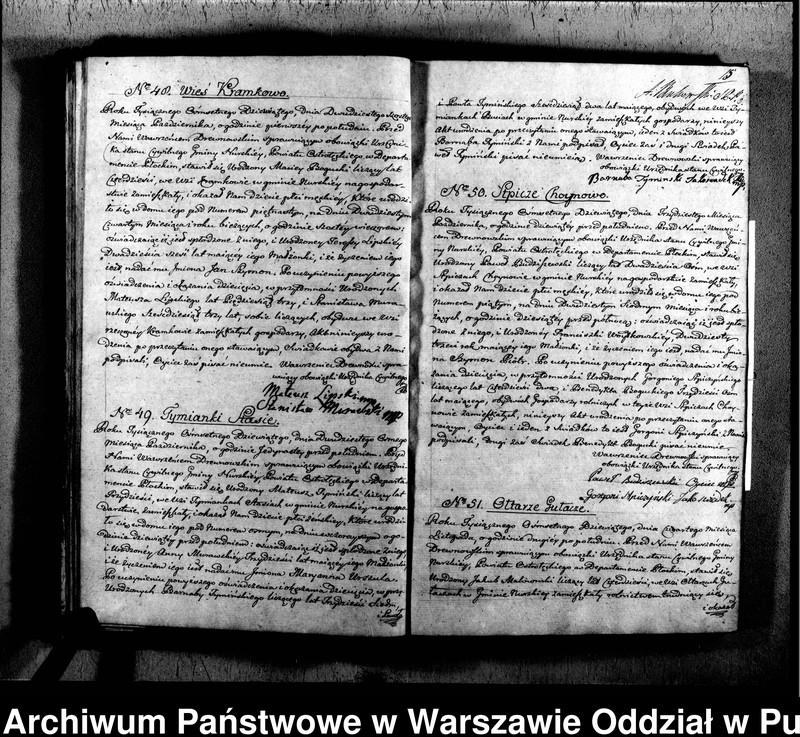 No 48. Wieś Kramkowo.
Roku Tysiącznego Ośmsetnego Dziewiątego, dnia Dwudziestego
Miesiąca Października, o godzinie pierwszej po południu. Przed
Nami Wawrzeńcem Drewnowskim sprawującym obowiązki Urzędni-
ka stanu Cywilnego Gminy Nurskiey, Powiatu Ostrołęckiego w Departa-
mencie Płockim, stawił się Urodzony Maciey Bogucki liczący lat
Czterdzieści, we wsi Kramkowie w gminie Nurskiey na gospodar-
stwie zamieszkały, i okazał Nam dziecie płci męzkiey, które urodzi-
ło się w domu iego pod Numerem piętnastym, na dniu Dwudziestym
Czwartym Miesiąca i roku bieżących, o godzinie szostey wieczorem;
oświadczaiąc iż iest spłodzone z niego, i Urodzoney Lipskiey
Dwadzieścia lat maiącey iego Małżonki, i że życzeniem iego
iest, nadać mu Imiona Jan Szymon. Po uczynieniu powyższego
oświadczenia i okazania dziecięcia, w przytomności Urodzonych
Mateusza Lipskiego lat Pięćdziesiąt trzy, i Stanisława Mura-
wskiego Sześćdziesiąt trzy lat, sobie liczących, obydwu we wsi
Kramkowie zamieszkałych gospodarzy, Akt ninieyszy uro-
dzenia po przeczytaniu onego stawaiącym, Świadkowie obydwa z Nami
podpisali, Oyciec zaś pisać nieumie. Wawrzeniec Drewnowski spra-
wuiący obowiązki Urzędnika Cywilnego
Mateusz Lipski mp
Stanisław Murawski mp
No 49. Tymianki Stasie.
Roku Tysiącznego Ośmsetnego Dziewiątego, dnia Dwudziestego Osmego
Miesiąca Października, o godzinie Jedynastey przed południem. Przed
Nami Wawrzeńcem Drewnowskim sprawującym obowiązki Urzędni-
ka stanu Cywilnego Gminy Nurskiey, Powiatu Ostrołęckiego w Departa-
mencie Płockim, stawił się Urodzony Mateusz Tymiński liczący lat
Trzydzieści, we wsi Tymiankach Stasiach w gminie Nurskiey na gospo-
darstwie zamieszkały, i okazał Nam dziecie płci żeńskiey, które urodzi-
ło się w domu iego pod Numerem osmym, na dniu wczorayszym o go-
dzinie dziewiątey przed południem: oświadczaiąc iż iest spłodzone z niego
i Urodzoney Anny Murawskiey, Trzydzieści lat maiącey iego Małżonki
i że życzeniem iego iest nadać mu Imiona Maryanna Urszula.
Po uczynieniu powyższego oświadczenia i okazania Dziecięcia, w przy-
Urodzonych Barnaby Tymińskiego liczącego lat Trzydzieści Siedm,
15
i Pawła Tymińskiego Sześćdziesiąt dwa lat maiącego, obydwuch we wsi Ty-
miankach Stasiach w gminie Nurskiey zamieszkałych gospodarzy, ninieyszy
Akt urodzenia po przeczytaniu onego stawaiącym, ieden z świadków to iest
Barnaba Tymiński z Nami podpisał, Oyciec zaś i drugi Świadek Pa-
weł Tymiński pisać nieumieią. Wawrzeniec Drewnowski sprawuiący
obowiązki Urzędnika stanu Cywilnego
Barnaba Tyminski Jako swiadek mp
No 50. Szpicze Choynowo.
Roku Tysiącznego Ośmsetnego Dziewiątego, dnia Trzydziestego Miesiąca
Października, o godzinie dziewiątey przed południem. Przed Nami Wawrzeń-
cem Drewnowskim sprawującym obowiązki Urzędnika stanu Cywilnego Gmi-
ny Nurskiey, Powiatu Ostrołęckiego w Departamencie Płockim, stawił się
Urodzony Paweł liczący lat Dwadzieścia Osm, we wsi
Szpiczach Choynowie w gminie Nurskiey na gospodarstwie zamieszkały,
i okazał Nam dziecie płci męzkiey, które urodziło się w domu iego pod
Numerem piątym, na dniu Dwudziestym Siodmym Miesiąca i roku bie-
żących, o godzinie dziesiątey przed północą; oświadczaiąc iż iest spło-
dzone z niego, i Urodzoney Agnieszki Woytkowskiey, Dwudziesty
trzeci rok maiącey iego Małżonki, i że życzeniem iego iest, nadać mu Imio-
na Szymon Piotr. Po uczynieniu powyższego oświadczenia i oka-
zania dziecięcia, w przytomności Urodzonych Gorgoniego Szpiczyńskiego
liczącego lat Czterdzieści dwa, i Benedykta Boguckiego Trzydzieści Osm
lat maiącego, obydwuch Gospodarzy rolniczych w teyże wsi Szpiczach Choy-
nowie zamieszkałych, ninieyszy Akt urodzenia po przeczytaniu onego sta-
waiącym, Oyciec i ieden z świadków to iest Gorgoni Szpiczyński z Nami
podpisali, drugi zaś świadek Benedykt Bogucki pisać nieumie.
Wawrzeniec Drewnowski sprawuiący
obowiązki Urzędnika stanu Cywilnego
Oyciec mp
Gorgoni Spiczyński Jako swiadek
No 51. Ołtarze Gołacze.
Roku Tysiącznego Ośmsetnego Dziewiątego, dnia Czwartego Miesiąca
Listopada, o godzinie drugiey po południu. Przed Nami Wawrzeńcem
Drewnowskim sprawującym obowiązki Urzędnika stanu Cywilnego Gminy
Nurskiey, Powiatu Ostrołęckiego w Departamencie Płockim, stawił się
Urodzony Jakub Malinowski liczący lat Czterdzieści, we wsi Ołtarzach Go-
łaczach w Gminie Nurskiey zamieszkały rolnictwem trudniący się
i okazał
Archiwum Państwowe w Warszawie Oddział w Pu